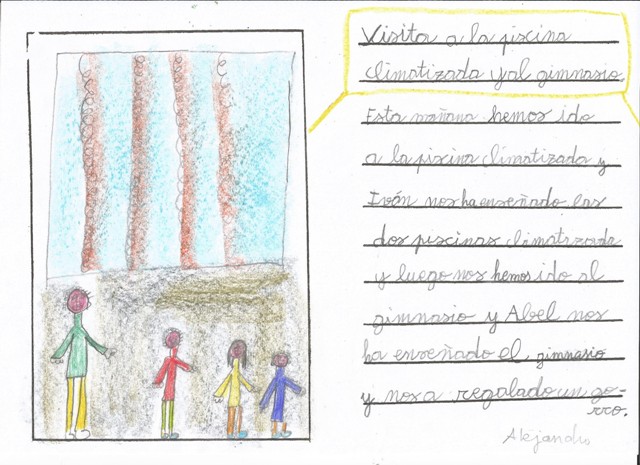 Visita a la piscina
climatizada y al gimnasio.
Esta mañana hemos ido
a la piscina climatizada y
Iván nos ha enseñado las
dos piscinas climatizada
y luego nos hemos ido al
gimnasio y Abel nos
ha enseñado el gimnasio
y nos a regalado un go-
rro.
Alejandro